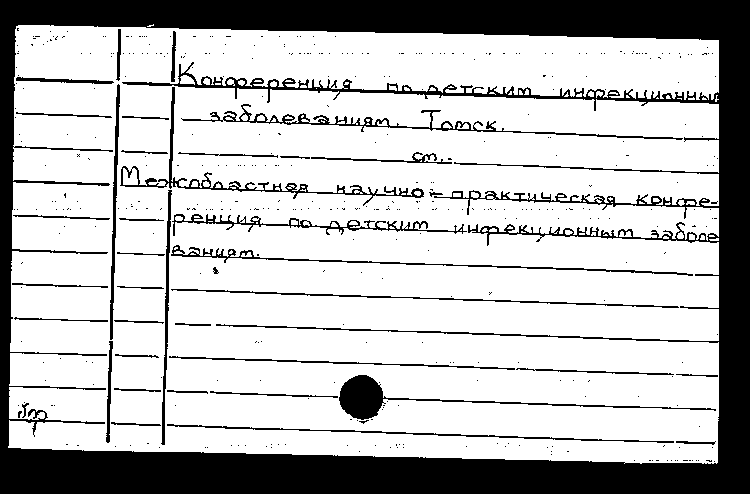 Конференция по детским инфекционным
заболеваниям. Томск.
см..
Межобластная научно-практическая конфе-
ренция по детским инфекционным заболе
ваниям.